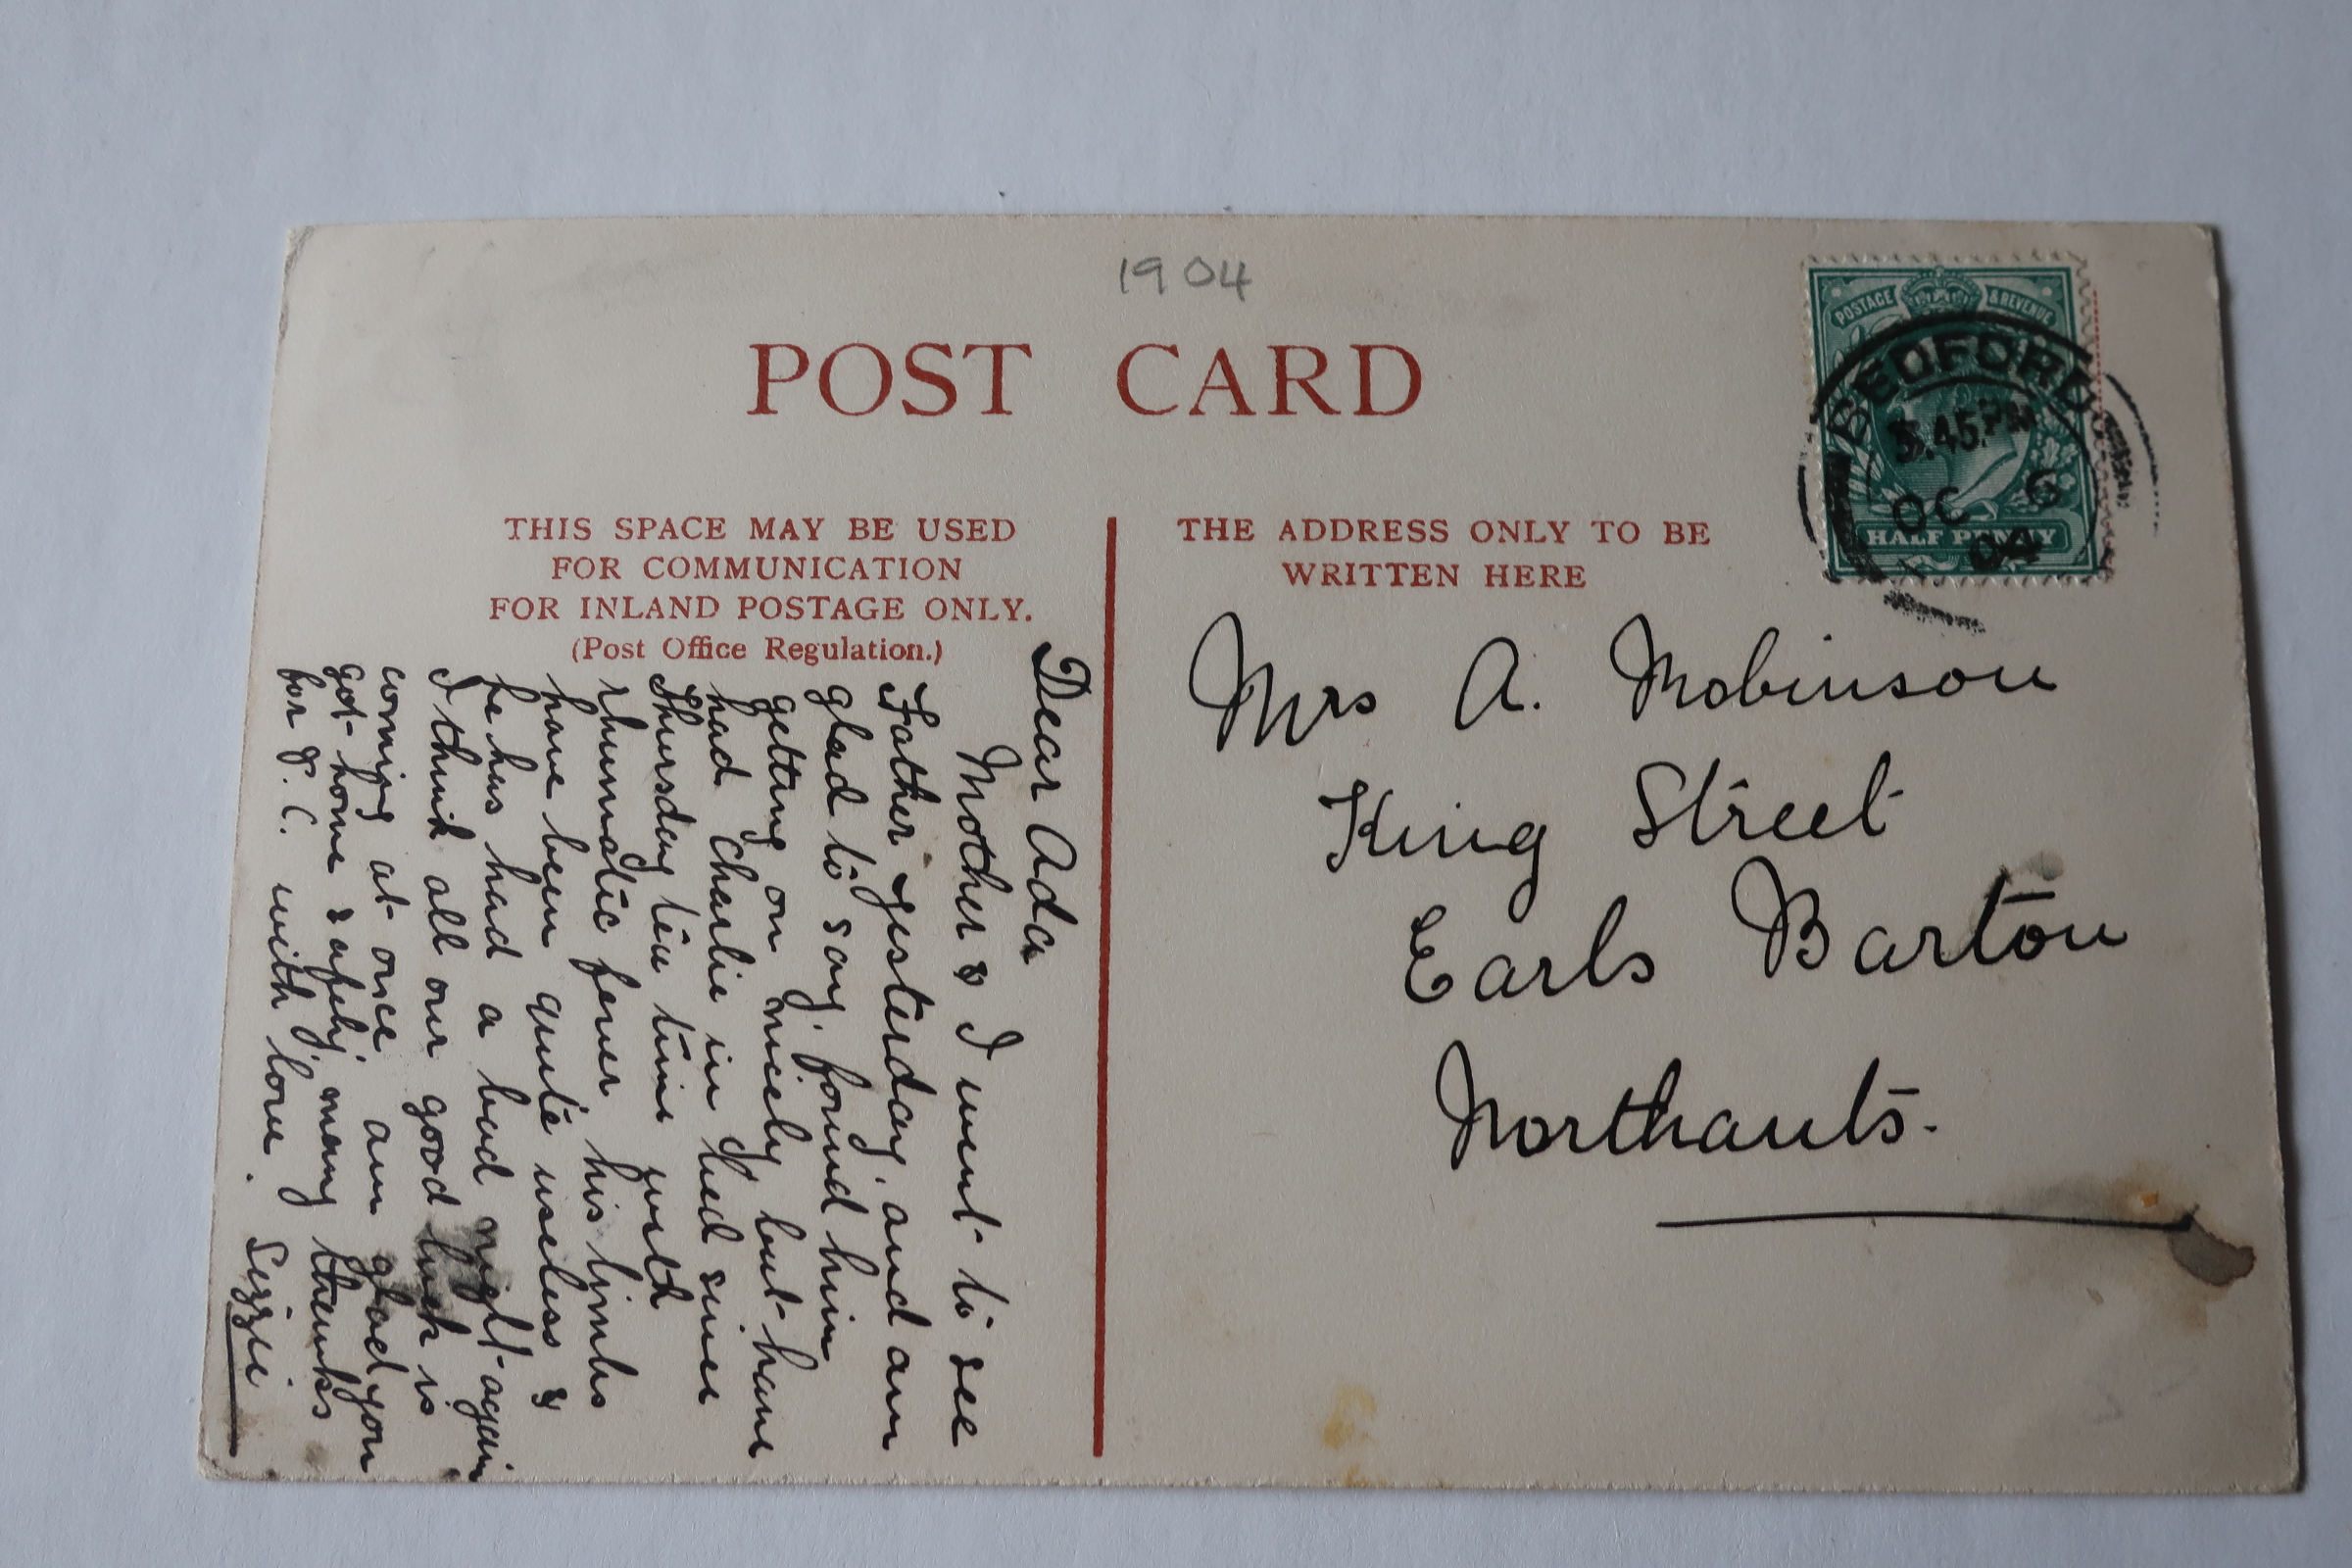 1904
POST CARD
THIS SPACE MAY BE USED
FOR COMMUNICATION
FOR INLAND POSTAGE ONLY.
(Post Office Regulation.)
Dear Ada
Mother & I went to see
Father yesterday, and am
glad to say, found him
getting on nicely, but have
had Charlie in bed since
Thursday tea time with
rhumatic fever his limbs
have been quite useless &
he has had a bad night again
I think all our good luck is
coming at once am glad you
got home safely, many thanks
for P.C. with love. Lizzie
THE ADDRESS ONLY TO BE
WRITTEN HERE
POSTAGE & REVENUE
BEDFORD
.45 PM
OC 6
04
HALF PENNY
Mrs A. Mobinson
King Street
Earls Barton
Northants.